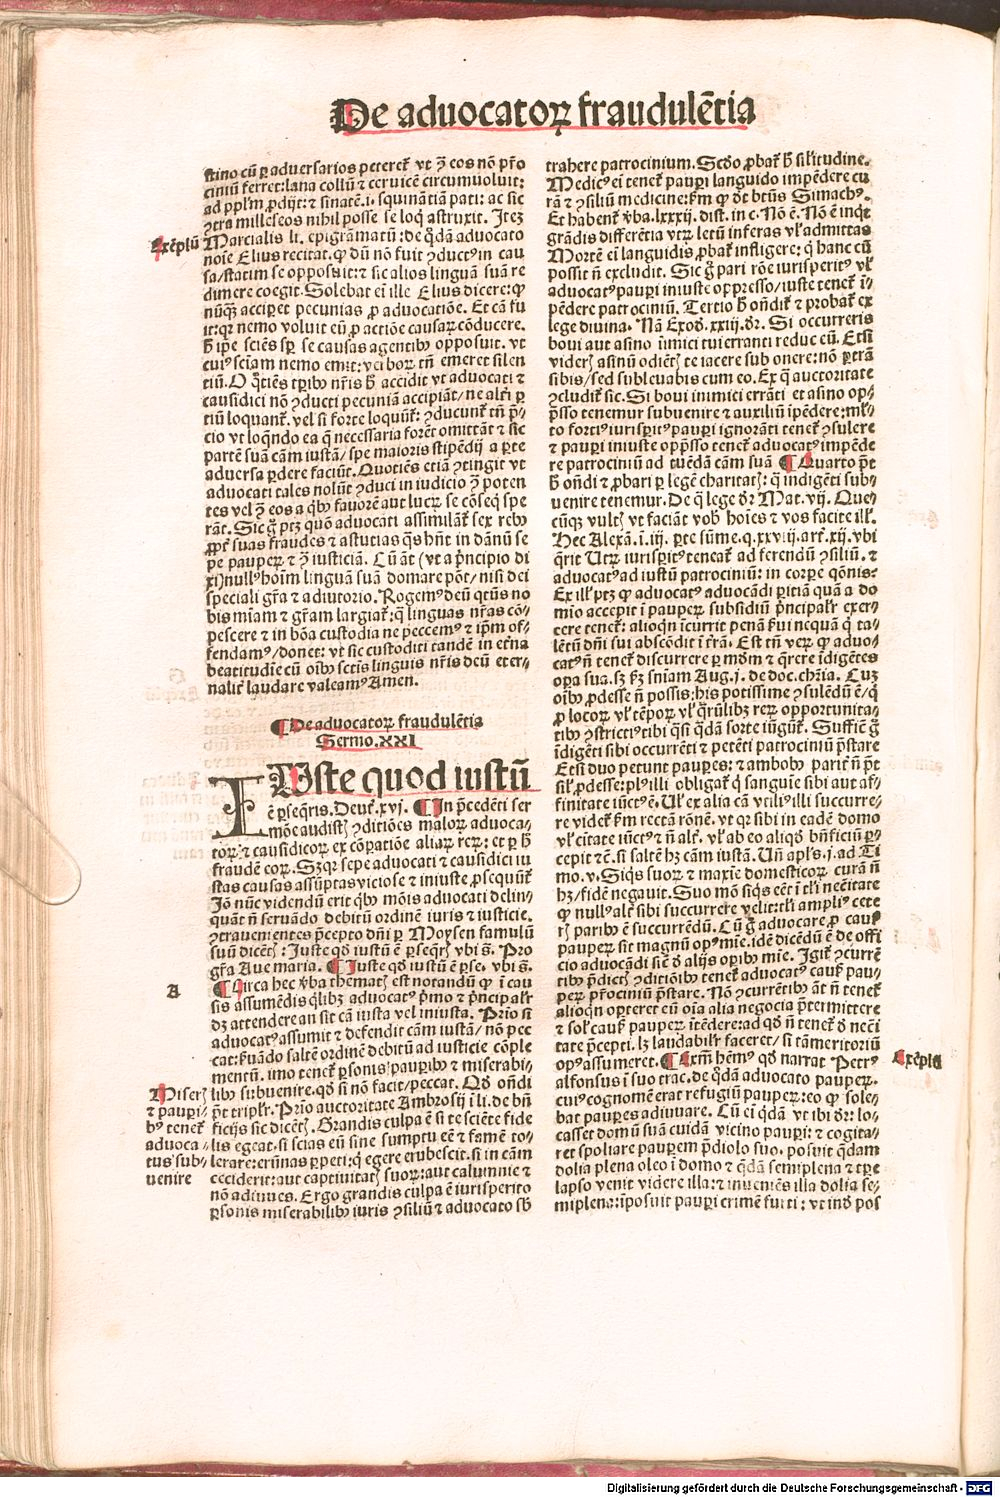 De aduocatoꝝ fraudulētia
stino cū ꝑ aduersarios peteret᷑ vt ꝯ̄ eos nō pr̄o
ciniū ferret: lana collū ⁊ ceruicē circumuoluit:
ad ppl'm ꝓdijt: ⁊ sinatē.i. squinātiā pati: ac sic
ꝯtra milleseos nihil posse se loq̄ astruxit. Itez
Exēplū
Marcialis li. epigrāmatū: de q̄dā aduocato
noīe Elius recitat. ꝙ dū nō fuit ꝯductꝰ in cau
sa/statim se opposuit: ⁊ sic alios linguā suā re
dimere coegit. Solebat eī ille Elius dicere: ꝙ
nūqꝫ acciperet pecunias ꝓ aduocatiōe. Et cā fu
it: qꝛ nemo voluit eū ꝓ actiōe causaꝝ cōducere.
h̄ ipe sciēs sꝑ se causas agentibꝰ opposuit. vt
cuiꝰ sciam nemo emit: verboꝝ tn̄ emeret silen
tiū. O q̄tiēs tꝑibꝰ nr̄is h̄ accidit vt aduocati ⁊
causidici nō ꝯducti pecuniā accipiāt/ne alt'i ꝑ
tiū loquant᷑. vel si forte loquūt᷑: ꝯducunt᷑ tn̄ p̄-
cio vt loq̄ndo ea q̄ necessaria foret omittāt ⁊ sic
partē suā cām iustā/spe maioris stipēdij a ꝑte
aduersa ꝑdere faciūt. Quotiēs etiā ꝯtingit vt
aduocati tales nolūt ꝯduci in iudicio ꝯ̄ poten
tes vel ꝯ̄ eos a qͥbꝰ fauorē aut lucꝝ se cōseq̄ spe
rāt. Sic g̊ ptꝫ quō aduocati assimilāt᷑ sex rebꝰ
ꝓpt' suas fraudes ⁊ astutias q̄s hn̄t in dānū se
pe pauperꝝ ⁊ ꝯ̄ iusticiā. Cū āt (vt a p̄ncipio di
xi) nullꝰ hoīm linguā suā domare pōt/nisi dei
speciali gr̄a ⁊ adiutorio. Rogemꝰ deū qtūs no
bis mīam ⁊ gr̄am largiat᷑: qͥ linguas nr̄as cō-
pescere ⁊ in bōa custodia ne peccemꝰ ⁊ ip̄m of-
fendamꝰ/donet: vt sic custoditi tandē in et'na
beatitudīe cū oībꝰ sctis linguis nr̄is deū eter-
nalit' laudare valeamꝰ Amen.
¶De aduocatoꝝ fraudulētia
Sermo.XXI
IUste quod iustū
ē ꝓseq̄ris. Deut'.xvj. ¶In p̄cedēti ser
mōe audistꝭ ꝯditiōes maloꝝ aduoca-
toꝝ: ⁊ causidicoꝝ ex cōꝑatiōe aliaꝝ reꝝ: et ꝑ h̄
fraudē eoꝝ. Sꝫqꝛ sepe aduocati ⁊ causidici iu
stas causas assūptas viciose ⁊ iniuste ꝓsequūt᷑
Iō nūc videndū erit qͥbꝰ mōis aduocati delin-
quāt n̄ seruādo debitū ordinē iuris ⁊ iusticie.
ꝯtrauenientes p̄cepto dn̄i ꝑ Moysen famulū
suū dicētꝭ: Iuste qd̄ iustū ē ꝑseq̄rꝭ vbi s̄. Pro
gr̄a Aue maria. ¶Iuste qd̄ iustū ē ꝑse. vbi s̄.
A
¶Circa hec v̄ba thematꝭ est notandū ꝙ ī cau
sis assumēdis qͥlibꝫ aduocatꝰ p̄mo ⁊ p̄ncipal'r
dꝫ attendere an sit cā iusta vel iniusta. Prīo si
aduocatꝰ assumit ⁊ defendit cām iustā/nō pec
cat: ẜuādo saltē ordinē debitū ad iusticie cōple
mentū. imo tenet᷑ ꝑsonis pauꝑibꝰ ⁊ miserabi-
Miserꝭ
⁊ pauꝑi-
bꝰ tenet᷑
aduoca-
tus sub-
uenire
libꝰ subuenire. qd̄ si nō facit/peccat. Qd̄ oñdi
p̄t tripl'r. Prīo auctoritate Ambrosij ī li. de bn̄
ficijs sic dicētꝭ. Grandis culpa ē si te sciēte fide
lis egeat. si scias eū sine sumptu eē ⁊ famē to-
lerare: erūnas ꝑpeti: qͥ egere erubescit. si in cām
ceciderit: aut captiuitatꝭ suoꝝ: aut calumnie ⁊
nō adiuues. Ergo grandis culpa ē iurisperito
ꝑsonis miserabilibꝰ iuris ꝯsiliū ⁊ aduocato sb̄
trahere patrocinium. Scd̄o ꝓbat᷑ h̄ sil'itudine.
Medicꝰ eī tenet᷑ pauꝑi languido impēdere cu
rā ⁊ ꝯsiliū medicine: ẜm ꝙ dt btūs Simachꝰ.
Et habent᷑ v̄ba. lxxxij. dist. in c. Nō ē. Nō ē inqͥt
grādis differētia vtꝝ letū inferas vl' admittas
Mortē eī languidis ꝓbat᷑ infligere: qͥ hanc cū
possit n̄ excludit. Sic g̊ pari rōe iurisperitꝰ vl'
aduocatꝰ pauꝑi iniuste oppresso/iuste tenet᷑ ī-
pēdere patrociniū. Tertio h̄ oñdit᷑ ⁊ probat᷑ ex
lege diuina. Nā Exod̄. xxiij. dr̄. Si occurreris
boui aut asino inimici tui erranti reduc eū. Etsi
viderꝭ asinū odiētꝭ te iacere sub onere: nō ꝑtrā
sibis/sed subleuabis cum eo. Ex q̄ auctoritate
ꝯcludit᷑ sic. Si boui inimici errāti et asino op-
p̄sso tenemur subuenire ⁊ auxiliū īpēdere: ml'-
to fortiꝰ iurisꝑitꝰ pauꝑi ignorāti tenet᷑ ꝯsulere
⁊ pauꝑi iniuste opp̄sso tenet᷑ aduocatꝰ impēde
re patrociniū ad tuēdā cām suā ¶Quarto p̄t
h̄ oñdi ⁊ ꝓbari ꝑ legē charitatꝭ: q̄ indigēti sub-
uenire tenemur. De q̄ lege dr̄ Mat. vij. Que-
cūqꝫ vultꝭ vt faciāt vob̄ hoīes ⁊ vos facite ill'.
Hec Alexā. ī .iij. ꝑte sūme. q. xxviij. art'. xij. vbi
q̄rit Utꝝ iurisꝑitꝰ teneat᷑ ad ferendū ꝯsiliū. ⁊
aduocatꝰ ad iustū patrociniū: in corꝑe qōnis:
Ex ill' ptꝫ ꝙ aduocatꝰ aduocādi ꝑitiā quā a do
mīo accepit ī pauperꝝ subsidiū p̄ncipal'r exer-
cere tenet᷑: alioqn̄ īcurrit penā ẜui nequā qͥ ta-
lētū dn̄i sui abscōdit ī tr̄a. Est tn̄ verꝝ ꝙ aduo-
catꝰ n̄ tenet᷑ discurrere ꝑ mōm ⁊ q̄rere īdigētes
opa sua. sꝫ ẜꝫ sn̄iam Aug. j. de doc. chr̄ia. Cuꝫ
oībꝰ ꝓdesse n̄ possis: his potissime ꝯsulēdū ē/qͥ
ꝓ locoꝝ vl' tēpoꝝ vl' q̄rūlibꝫ reꝝ opportunita-
tibꝰ ꝯstrictiꝰ tibi q̄si q̄dā sorte iūgūt᷑. Suffic̄ g̊
īdigēti sibi occurrēti ⁊ petēti patrociniū p̄stare
Etsi duo petunt pauꝑes: ⁊ ambobꝰ parit' n̄ p̄t
sil' ꝓdesse: plꝰ illi obligat᷑ qͥ sanguīe sibi aut af-
finitate iūctꝰ ē. Ul' ex alia cā vtili illi succurre-
re videt᷑ ẜm rectā rōnē. vt qꝛ sibi in eadē domo
vl' citate iūctꝰ ⁊ n̄ alt'. vl' ab eo aliqd̄ bn̄ficiū ꝑ-
cepit ⁊c̄. si saltē hꝫ cām iustā. Un̄ apl's. j. ad Ti
mo. v. Siqͥs suoꝝ ⁊ maxīe domesticoꝝ curā n̄
hꝫ/fidē negauit. Suo mō siqͥs eēt ī tl'i ncc̄itate
ꝙ nullꝰ alt' sibi succurrere velit: tl'i ampliꝰ cete
rꝭ paribꝰ ē succurrēdū. Cū g̊ aduocare ꝓ causꝭ
pauperꝝ sit magnū opꝰ mīe. idē dicēdū ē de offi
cio aduocādi sic̄ d̄ alijs oꝑibꝰ mīe. Igit᷑ ꝯcurrē
tibꝰ p̄dictꝭ ꝯditiōibꝰ tenet᷑ aduocatꝰ causꝭ pau-
perꝝ pr̄ociniū p̄stare. Nō ꝯcurrētibꝰ āt n̄ tenet᷑
alioqn̄ oporteret eū oīa alia negocia p̄termittere
⁊ sol' causꝭ pauperꝝ ītēdere: ad qd̄ n̄ tenet᷑ d̄ ncc̄i
tate p̄cepti. lꝫ laudabil'r faceret/si tā meritoriū
Exēplū
opꝰ assumeret. ¶Exm̄ hēmꝰ qd̄ narrat Petrꝰ
alfonsus ī suo trac. de q̄dā aduocato pauperꝝ.
cuiꝰ cognomē erat refugiū pauperꝝ: eo ꝙ sole-
bat pauꝑes adiuuare. Cū eī q̄dā vt ibi dr̄: lo-
casset domū suā cuidā vicino pauꝑi: ⁊ cogita-
ret spoliare pauꝑem p̄diolo suo. posuit q̄dam
dolia plena oleo ī domo ⁊ q̄dā semiplena ⁊ tꝑe
lapso venit videre illa: ⁊ inueniēs illa dolia se-
miplena: īposuit pauꝑi crimē furti: vt ind̄ pos
Digitalisierung gefördert durch die Deutsche Forschungsgemeinschaft - DFG